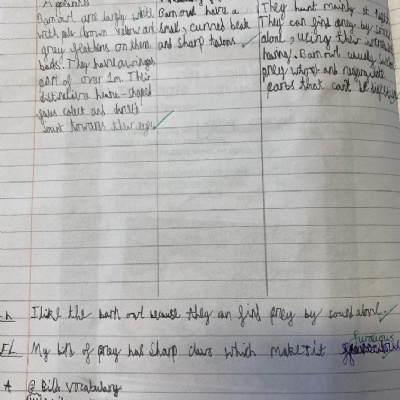 Barn owl are largely white
with pale brown yellow and
grey feathers on there
backs. They have a wingspan
of over 1m. Their
distinctive heart-shaped
faces collect and direct
sound towards their
Barn owl have a
small, curved beak
and sharp talons
They hunt mainly at
They can find prey by sound
alone, using their
hearing. Barn owl usually swallow
prey whole and regurgitate
parts that cant be
I like the barn owl because they can find prey by sound alone.
My bird of pray has sharp claws which makes it
Bird vocabulary